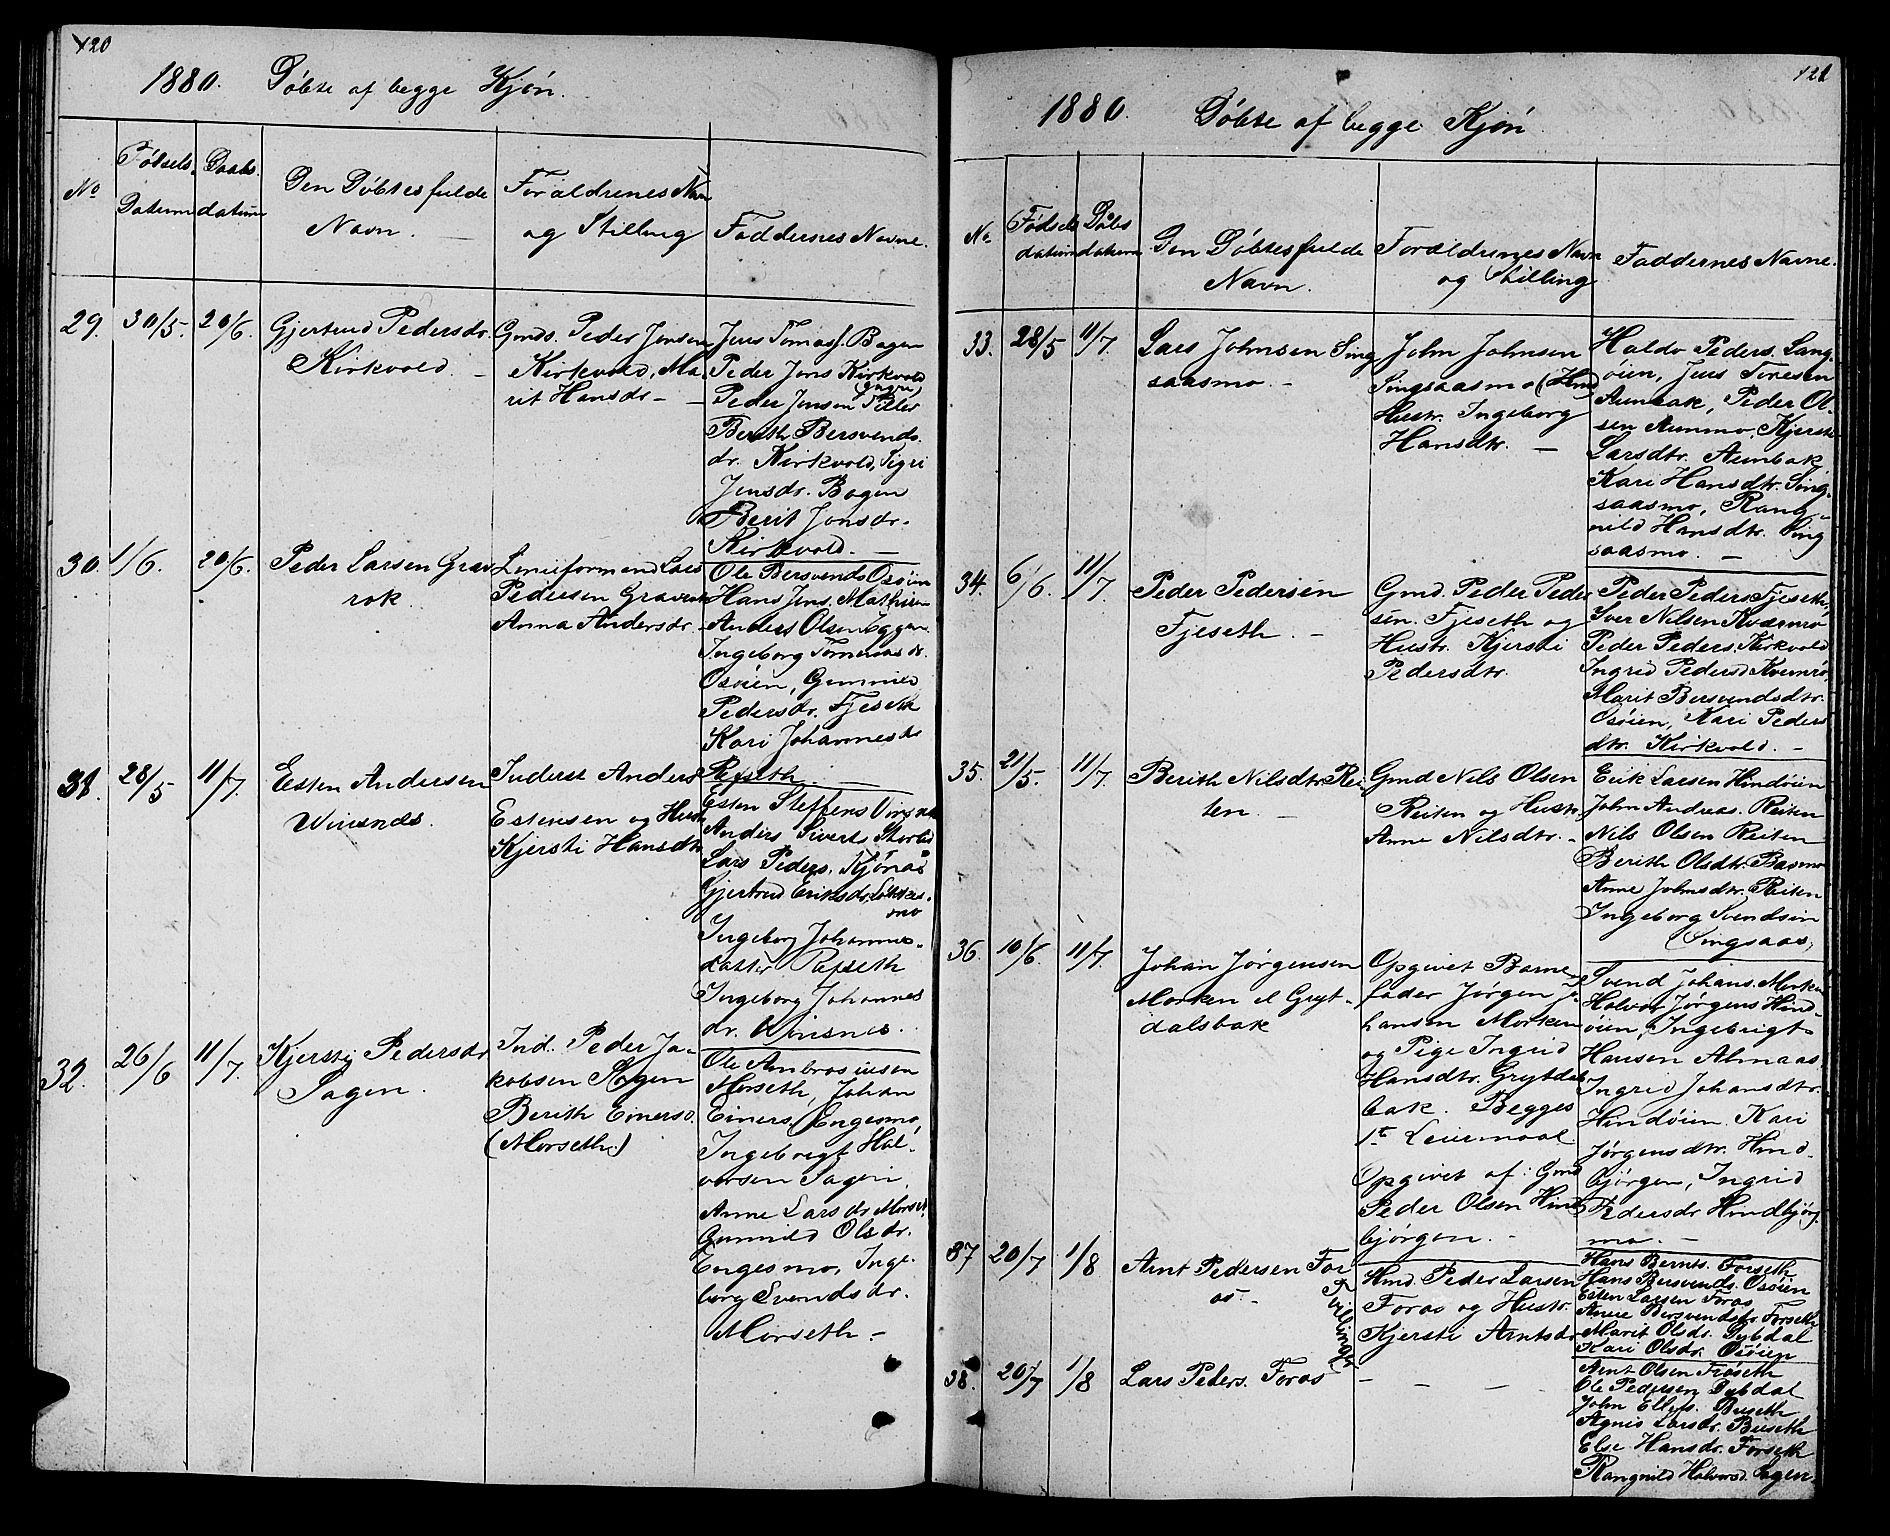 120
1880. Döbte af begge Kjön.
No
Fötsels Datum
Daabs datum
Den Döbtes fulde Navn.
Forældrenes Navn og Stilling
Faddernes Navne.
29. 30/5. 20/6.
Gjertrud Pedersdr.
Kirkvold. —
Gmds. Peder Jensen
Kirkvold, Ma-
rit Hansdr. —
Jens Tomas. Bogen
Peder Jons Kirkvold
Peder Jensen
Berith Bersvends.
dr. Kirkvold, Sigri
Jensdr. Bogen
Berit Jonsdr.
Kirkvold. —
30 1/6. 20/6.
Peder Larsen Grav
rok.
Lars
Pedersen Gravrok
Anna Andersdr.
Ole Bersvends Osöien
Hans Jens. Mathisen
Anders Olsen Oggen
Ingeborg Tomasdr.
Osöien, Gunnild
Pedersdr. Fjeseth
Kari Johannesdr
Refseth. —
31. 28/5 11/7.
Esten Andersen
Winsnes.
Inderst Anders
Estensen og Hustr
Kjersti Hansdtr
Esten Steffens Vinsnes
Anders Siverts Storbo
Lars Peders. Kjönaas
Gjertrud Eriksdr. Lökkes-
mo
Ingeborg Johannes-
datter Refseth
Ingeborg Johannes
dr. Winsnes.
32. 26/6 11/7.
Kjersti Pedersdr
Sagen.
Ind. Peder Ja-
kobsen Sagen
Berith Einersd.
(Morseth)
Ole Ambrosiusen
Morseth, Johan
Einers. Engesmo,
Ingebrigt Hal-
vorsen Sagen,
Anne Larsdr. Morset,
Gunnild Olsdr.
Engesmo, Inge-
borg Svendsdr.
Morseth —
121
1880. Döbte af begge Kjön
No
Födsels datum
Döbs datum
Den Döbtes fulde Navn.
Forældrenes Navn og Stilling
Faddernes Navne.
33. 28/5 11/7.
Lars Johnsen Sing
saasmo. —
John Johnsen
Singsaasmo (Hmd)
Hustr. Ingeborg
Hansdtr. —
Haldo Peders. Lang-
öien, Jens Toresen
Aunbak, Peder Ol-
sen Aunmo, Kjersti
Larsdtr. Aunbak,
Kari Hansdtr. Sing-
saasmo, Rang-
nild Hansdtr. Sing
saasmo. —
34. 6/6. 11/7.
Peder Pedersen
Fjeseth. —
Gmd. Peder Peder
sen. Fjeseth og
Hustr. Kjersti
Pedersdtr.
Peder Peders. Fjeseth,
Iver Nilsen Kværnrö
Peder Peders. Kirkvold
Ingrid Pedersd Kvernrö
Marit Bersvendsdtr.
Osöien, Kari Peders
dtr. Kirkvold. —
35. 21/5 11/7.
Berith Nilsdtr. Rei-
ten. —
Gmd Nils Olsen
Reiten og Hustr.
Anne Nilsdtr. —
Erik Larsen Hindöien
John Andreas. Reiten
Nils Olsen Reiten
Berith Olsdtr. Basmo
Anne Johnsdtr. Reiten
Ingeborg Svendsen
(Singsaas)
36. 10/6. 11/7.
Johan Jörgensen
Morken el Gryt-
dalsbak
Opgivet Barne-
fader Jörgen Jo-
hansen Morken
og Pige Ingrid
Hansdtr. Grytdals
bak. Begges
1ste Leiermaal.
Opgivet af: Gmd
Peder Olsen Hind
bjørgen. —
Svend Johans. Morken
Halvor Jörgens Hind-
öien, Ingebrigt
Hansen Almaas,
Ingrid Johansdtr.
Hindöien. Kari
Jörgensdtr. Hind-
bjørgen, Ingrid
Pedersdr Hindbjörg-
mo. —
37 20/7 1/8
Arnt Pedersen For
os. —
Tvillinger
Hmd. Peder Larsen
Foros og Hustr.
Kjersti Arntsdr
Hans Bernts. Forseth
Hans Bersvends. Osöien
Esten Larsen Foros
Anne Bersvendsdtr Forseth
Marit Olsdr. Dybdal
Kari Olsdr. Osöien
38. 20/7 1/8
Lars Peders. Foros
— — —
Arnt Olsen Fröseth
Ole Pedersen Dybdal
John Ellefs. Buseth
Agnis Larsdr. Buseth
Else Hansdr. Forseth
Rangnild Halvorsd. Sagen